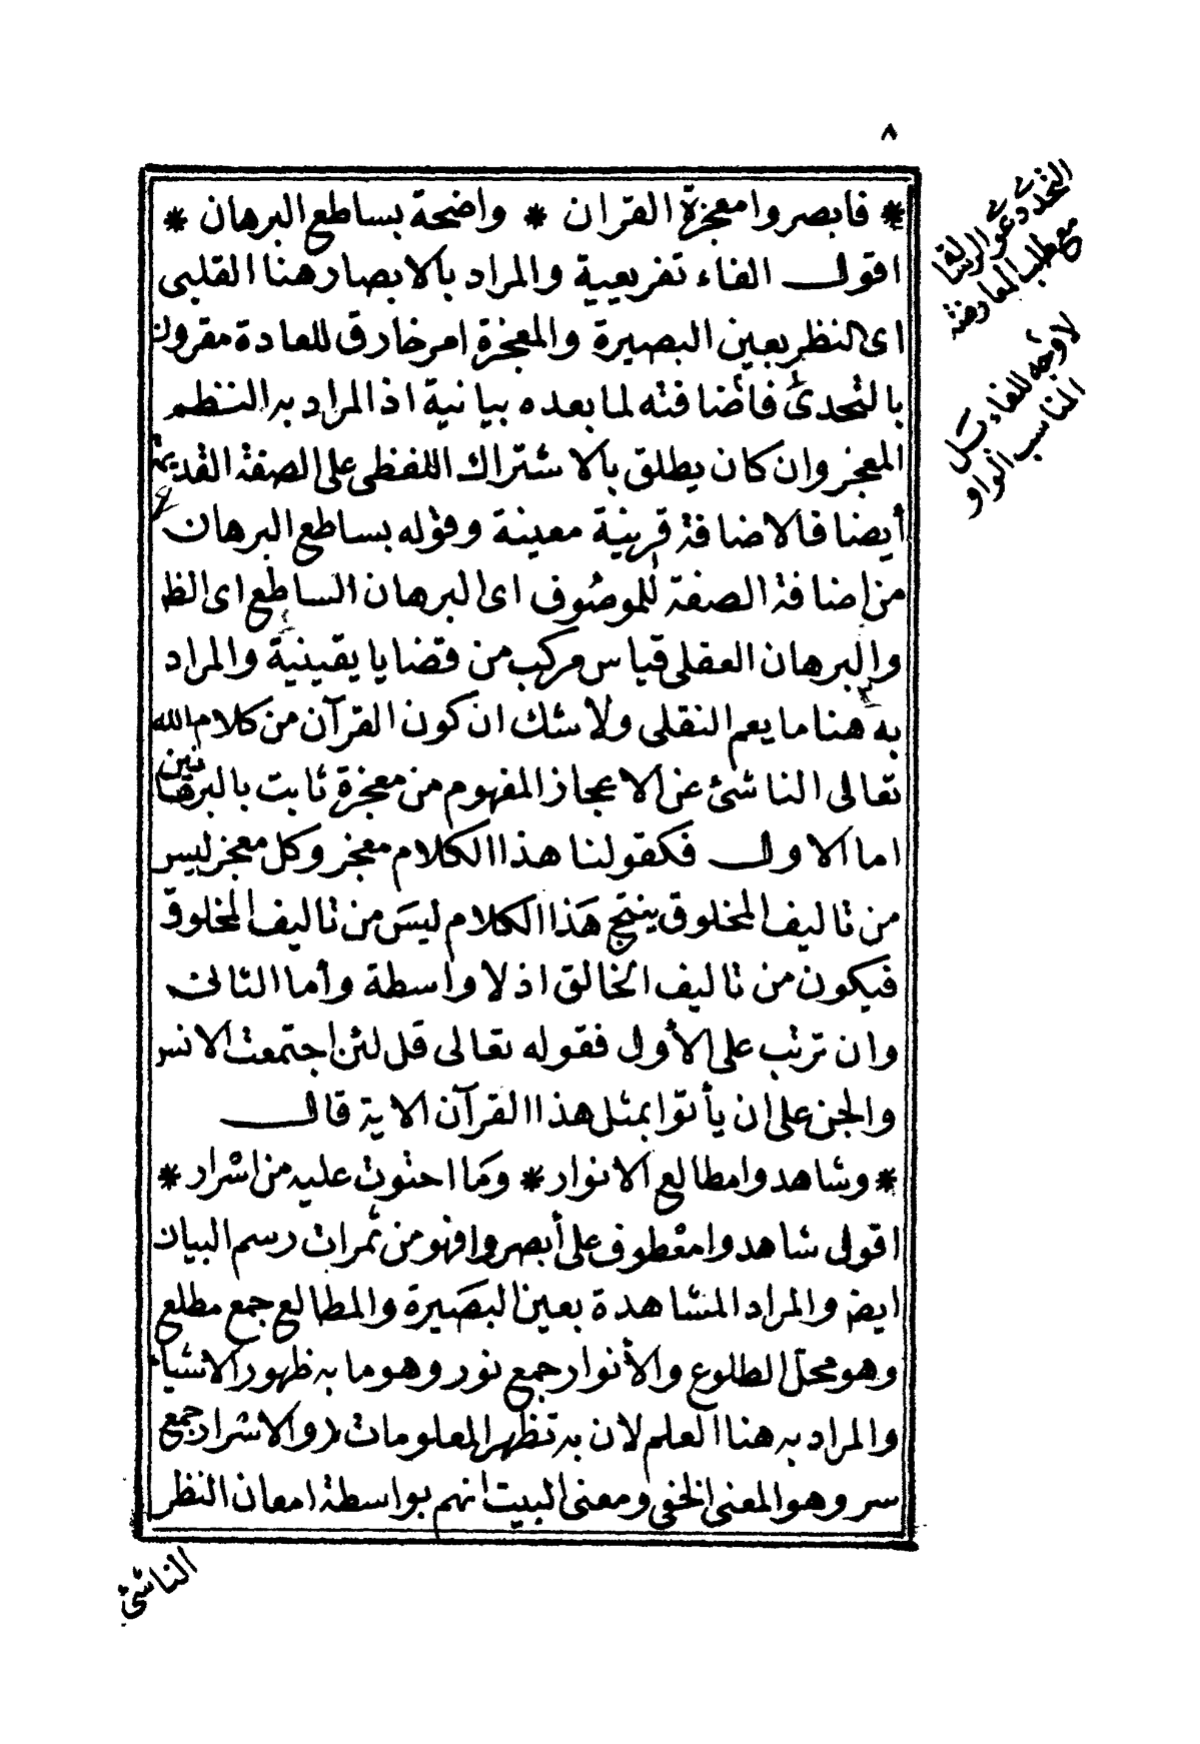 ٨
* فابصروا معجزة القران * واضحة بساطع البرهان *
اقول الفاء تفريعية والمراد بالابصار هنا القلبى
اى النظر بعين البصيرة والمعجزة امر خارق للعادة مقرون
بالتحدى فأضافته لما بعده بيانية اذ المراد به النظم
المعجز وان كان يطلق بالاشتراك اللفظى على الصفة القديمة
أيضا فالاضافة قرينية معينة وقوله بساطع البرهان
من اضافة الصفة للموصوف اى البرهان الساطع اى الظ
والبرهان العقلى قياس مركب من قضايا يقينية والمراد
به هنا ما يعم النقلى ولا شك ان كون القرآن من كلام الله
تعالى الناشئ عن الاعجاز المفهوم من معجزة ثابت بالبرهانين
اما الاول فكقولنا هذا الكلام معجز وكل معجز ليس
من تاليف المخلوق ينتج هذا الكلام ليس من تاليف المخلوق
فيكون من تاليف الخالق اذ لا واسطة وأما الثانى
وان ترتب على الأول فقوله تعالى قل لئن اجتمعت الانس
والجن على ان يأتوا بمثل هذا القرآن الاية قال
* وشاهدوا مطالع الانوار * وما احتوت عليه من اسرار *
اقول شاهدوا معطوف على أبصروا فهو من ثمرات رسم البيان
ايض والمراد المشاهدة بعين البصيرة والمطالع جمع مطلع
وهو محل الطلوع والأنوار جمع نور وهو ما به ظهور الاشياء
والمراد به هنا العلم لان به تظهر المعلومات والاسرار جمع
سر وهو المعنى الخفى ومعنى البيت انهم بواسطة امعان النظر
الناشئ
التحدى دعوى الرسالة
مع طلب المعارضة
لا وجه للفاء بل
المناسب الواو